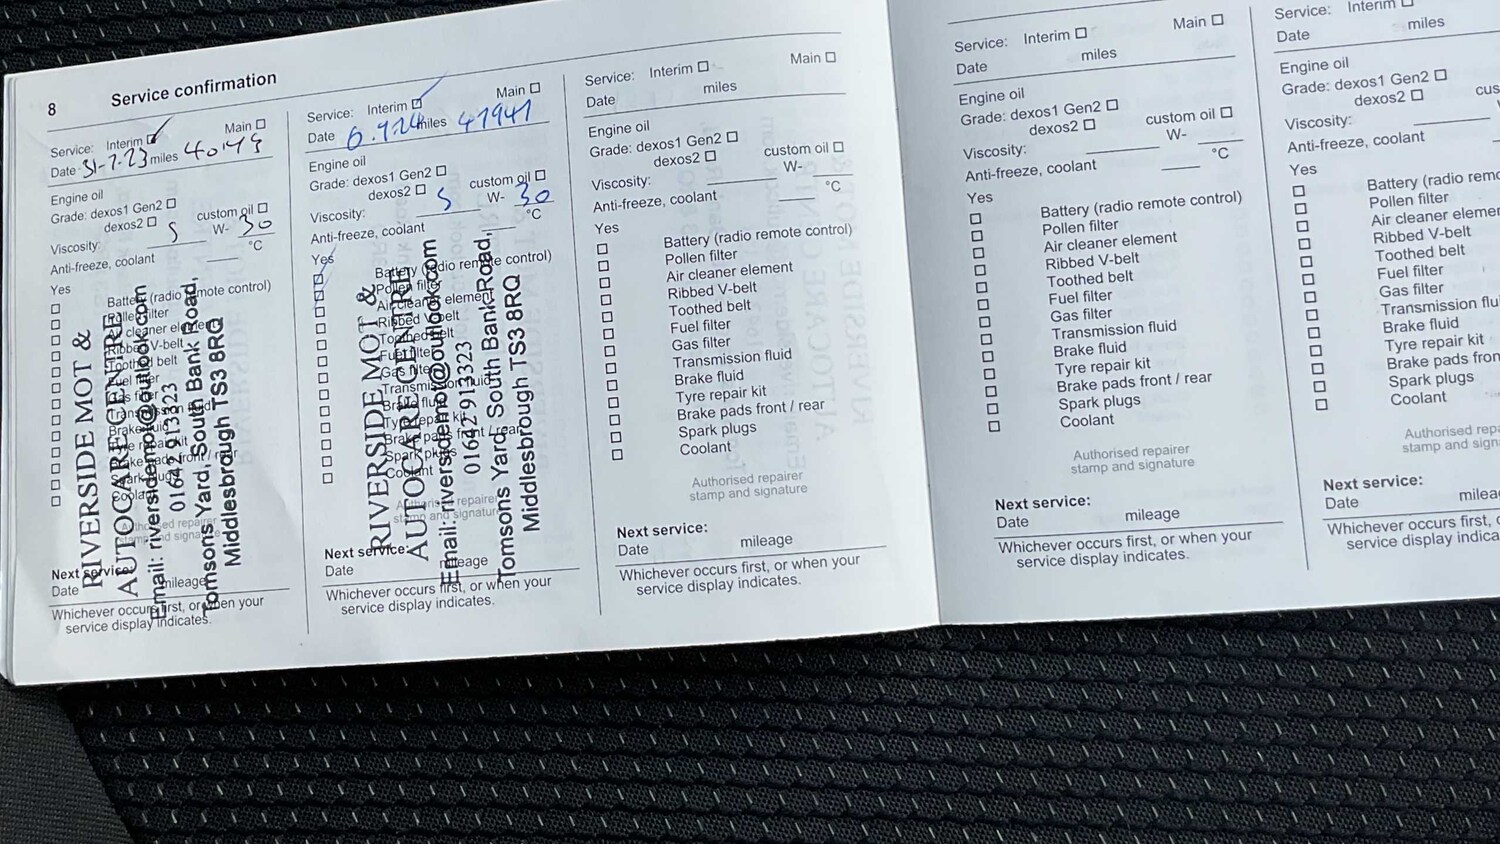 8 Service confirmation
Service: Interim Main
Date 31-7-23 miles
Engine oil
Grade: dexos1 Gen2
dexos2 custom oil
Viscosity: 5 W- 30
Anti-freeze, coolant °C
Yes
Battery (radio remote control)
Pollen filter
Air cleaner element
Ribbed V-belt
Toothed belt
Fuel filter
Gas filter
Transmission fluid
Brake fluid
Tyre repair kit
Brake pads front / rear
Spark plugs
Coolant
Authorised repairer
stamp and signature
RIVERSIDE MOT &
AUTOCARE CENTRE
Email: riversidemot@outlook.com
01642 913323
Tomsons Yard, South Bank Road,
Middlesbrough TS3 8RQ
Next service:
Date mileage
Whichever occurs first, or when your
service display indicates.
Service: Interim Main
Date miles 41941
Engine oil
Grade: dexos1 Gen2
dexos2 custom oil
Viscosity: 5 W- 30
Anti-freeze, coolant °C
Yes
Battery (radio remote control)
Pollen filter
Air cleaner element
Ribbed V-belt
Toothed belt
Fuel filter
Gas filter
Transmission fluid
Brake fluid
Tyre repair kit
Brake pads front / rear
Spark plugs
Coolant
Authorised repairer
stamp and signature
RIVERSIDE MOT &
AUTOCARE CENTRE
Email: riversidemot@outlook.com
01642 913323
Tomsons Yard, South Bank Road,
Middlesbrough TS3 8RQ
Next service:
Date mileage
Whichever occurs first, or when your
service display indicates.
Service: Interim Main
Date miles
Engine oil
Grade: dexos1 Gen2
dexos2 custom oil
Viscosity: W-
Anti-freeze, coolant °C
Yes
Battery (radio remote control)
Pollen filter
Air cleaner element
Ribbed V-belt
Toothed belt
Fuel filter
Gas filter
Transmission fluid
Brake fluid
Tyre repair kit
Brake pads front / rear
Spark plugs
Coolant
Authorised repairer
stamp and signature
Next service:
Date mileage
Whichever occurs first, or when your
service display indicates.
Service: Interim Main
Date miles
Engine oil
Grade: dexos1 Gen2
dexos2 custom oil
Viscosity: W-
Anti-freeze, coolant °C
Yes
Battery (radio remote control)
Pollen filter
Air cleaner element
Ribbed V-belt
Toothed belt
Fuel filter
Gas filter
Transmission fluid
Brake fluid
Tyre repair kit
Brake pads front / rear
Spark plugs
Coolant
Authorised repairer
stamp and signature
Next service:
Date mileage
Whichever occurs first, or when your
service display indicates.
Service: Interim
Date miles
Engine oil
Grade: dexos1 Gen2
dexos2 cus
Viscosity:
Anti-freeze, coolant
Yes
Battery (radio remo
Pollen filter
Air cleaner elemen
Ribbed V-belt
Toothed belt
Fuel filter
Gas filter
Transmission flu
Brake fluid
Tyre repair kit
Brake pads fron
Spark plugs
Coolant
Authorised repa
stamp and sign
Next service:
Date mileag
Whichever occurs first, o
service display indica